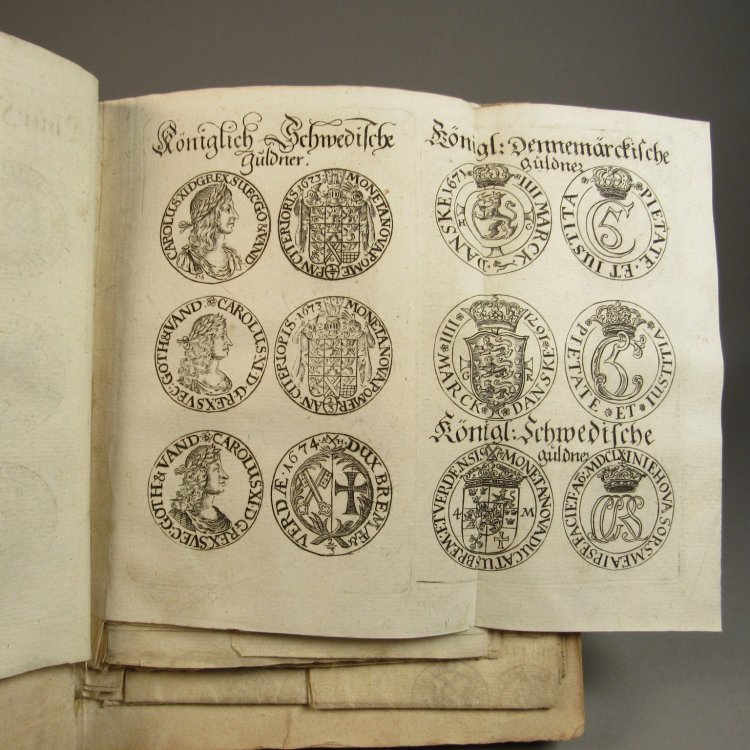 Königlich Schwedische
Guldner.
CAROLUS XI D G REX SUEC GO & VAND
MONETA NOVA POME RAN CITERIORIS 1673
CAROLUS XI D G REX SVEC GOTH & VAND
MONETA NOVA POMER AN CITERIORIS 1673
CAROLUS XI D G REX SVEC GOTH & VAND
1674 DUX BREMÆ & VERDÆ
Königl: Dennemärckische
guldner
IIII MARCK DANSKE 1671
PIETATE ET IUSTITA
IIII MARCK DANSKE 1671
PIETATE ET IUSTITIA
Königl: Schwedische
guldner
MONETA NOVA DUCATUS BREM ET VERDENSIS
4 M
IEHOVA SORS MEA IPSE FACIET Aº MDCLXI